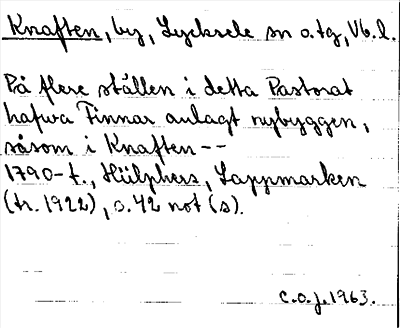 Knaften, by, Lycksele sn o. tg, Vb. l.
På flere ställen i detta Pastorat
hafwa Finnar anlagt nybyggen,
såsom i Knaften --
1790-t., Hülphers, Lappmarken
(tr. 1922), s. 42 not (s).
C.O.J. 1963.